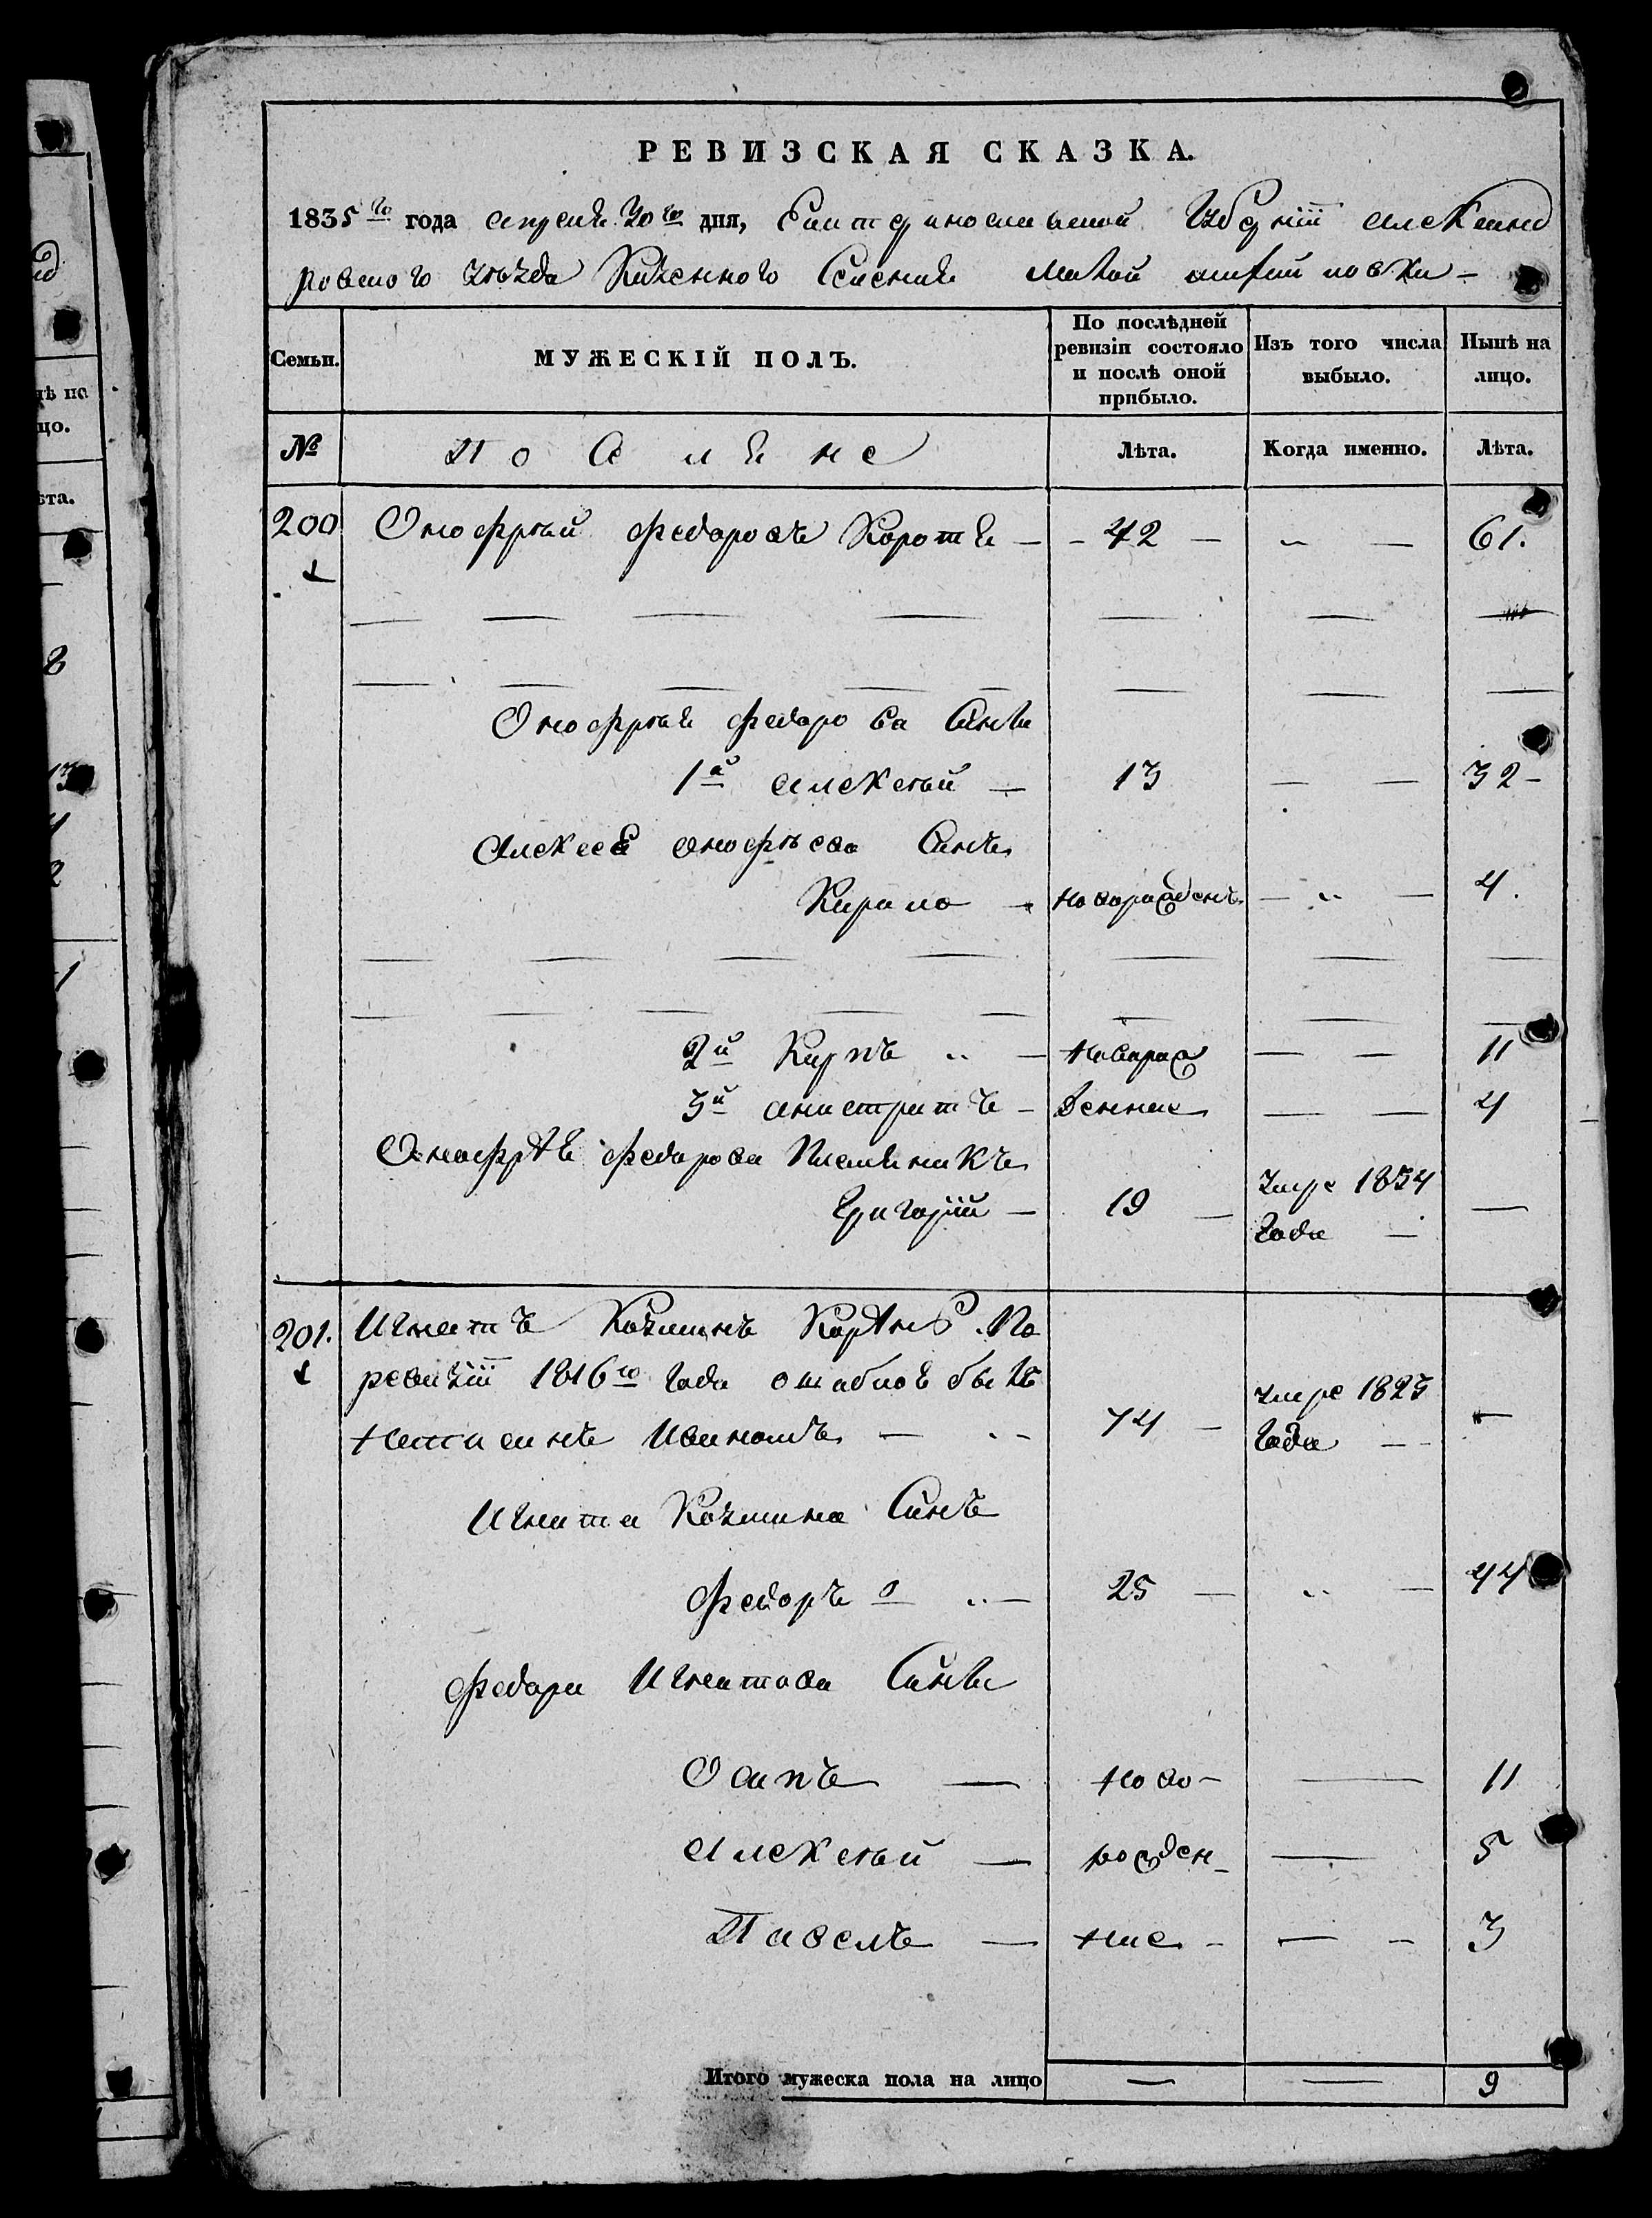 РЕВИЗСКАЯ СКАЗКА.
1835го года апреля 30го дня, Екатериносла вской Губернiи Александ
ровского уѣзда Казенного Селения Малой
Семьи. МУЖЕСКIЙ ПОЛЪ. По послѣдней ревизiи состояло и послѣ оной прибыло. Изъ того числа выбыло. Нынѣ на лицо.
№ Поселяне Лѣта. Когда именно. Лѣта.
200 Онофрѣй Федаровъ Коротя - 42 - 61.
Онофрѣя Федарова Сынъи
1й Алексѣй - 13 - 32 -
Алексея Онофрѣева Сынъ
Кирило - новоражденъ - 4.
2й Карпъ - Новораж - 11
3й Анистратъ - денные - 4
Онофрѣя Федарова Племяникъ
Григорiй - 19 - умре 1834 -
Года -
201. Игнатъ Козминъ По
ревизiи 1816го Года ошибкою былъ
написанъ Иваномъ - 74 - умре 1823 -
Года -
Игната Козмина Сынъ
Федоръ - 25 - 44
Федара Игнатова Сынъи
Осипъ - ново- - 11
Алексѣй - рожден- - 5
Павелъ - ные - 3
Итого мужеска пола на лицо - - 9
1